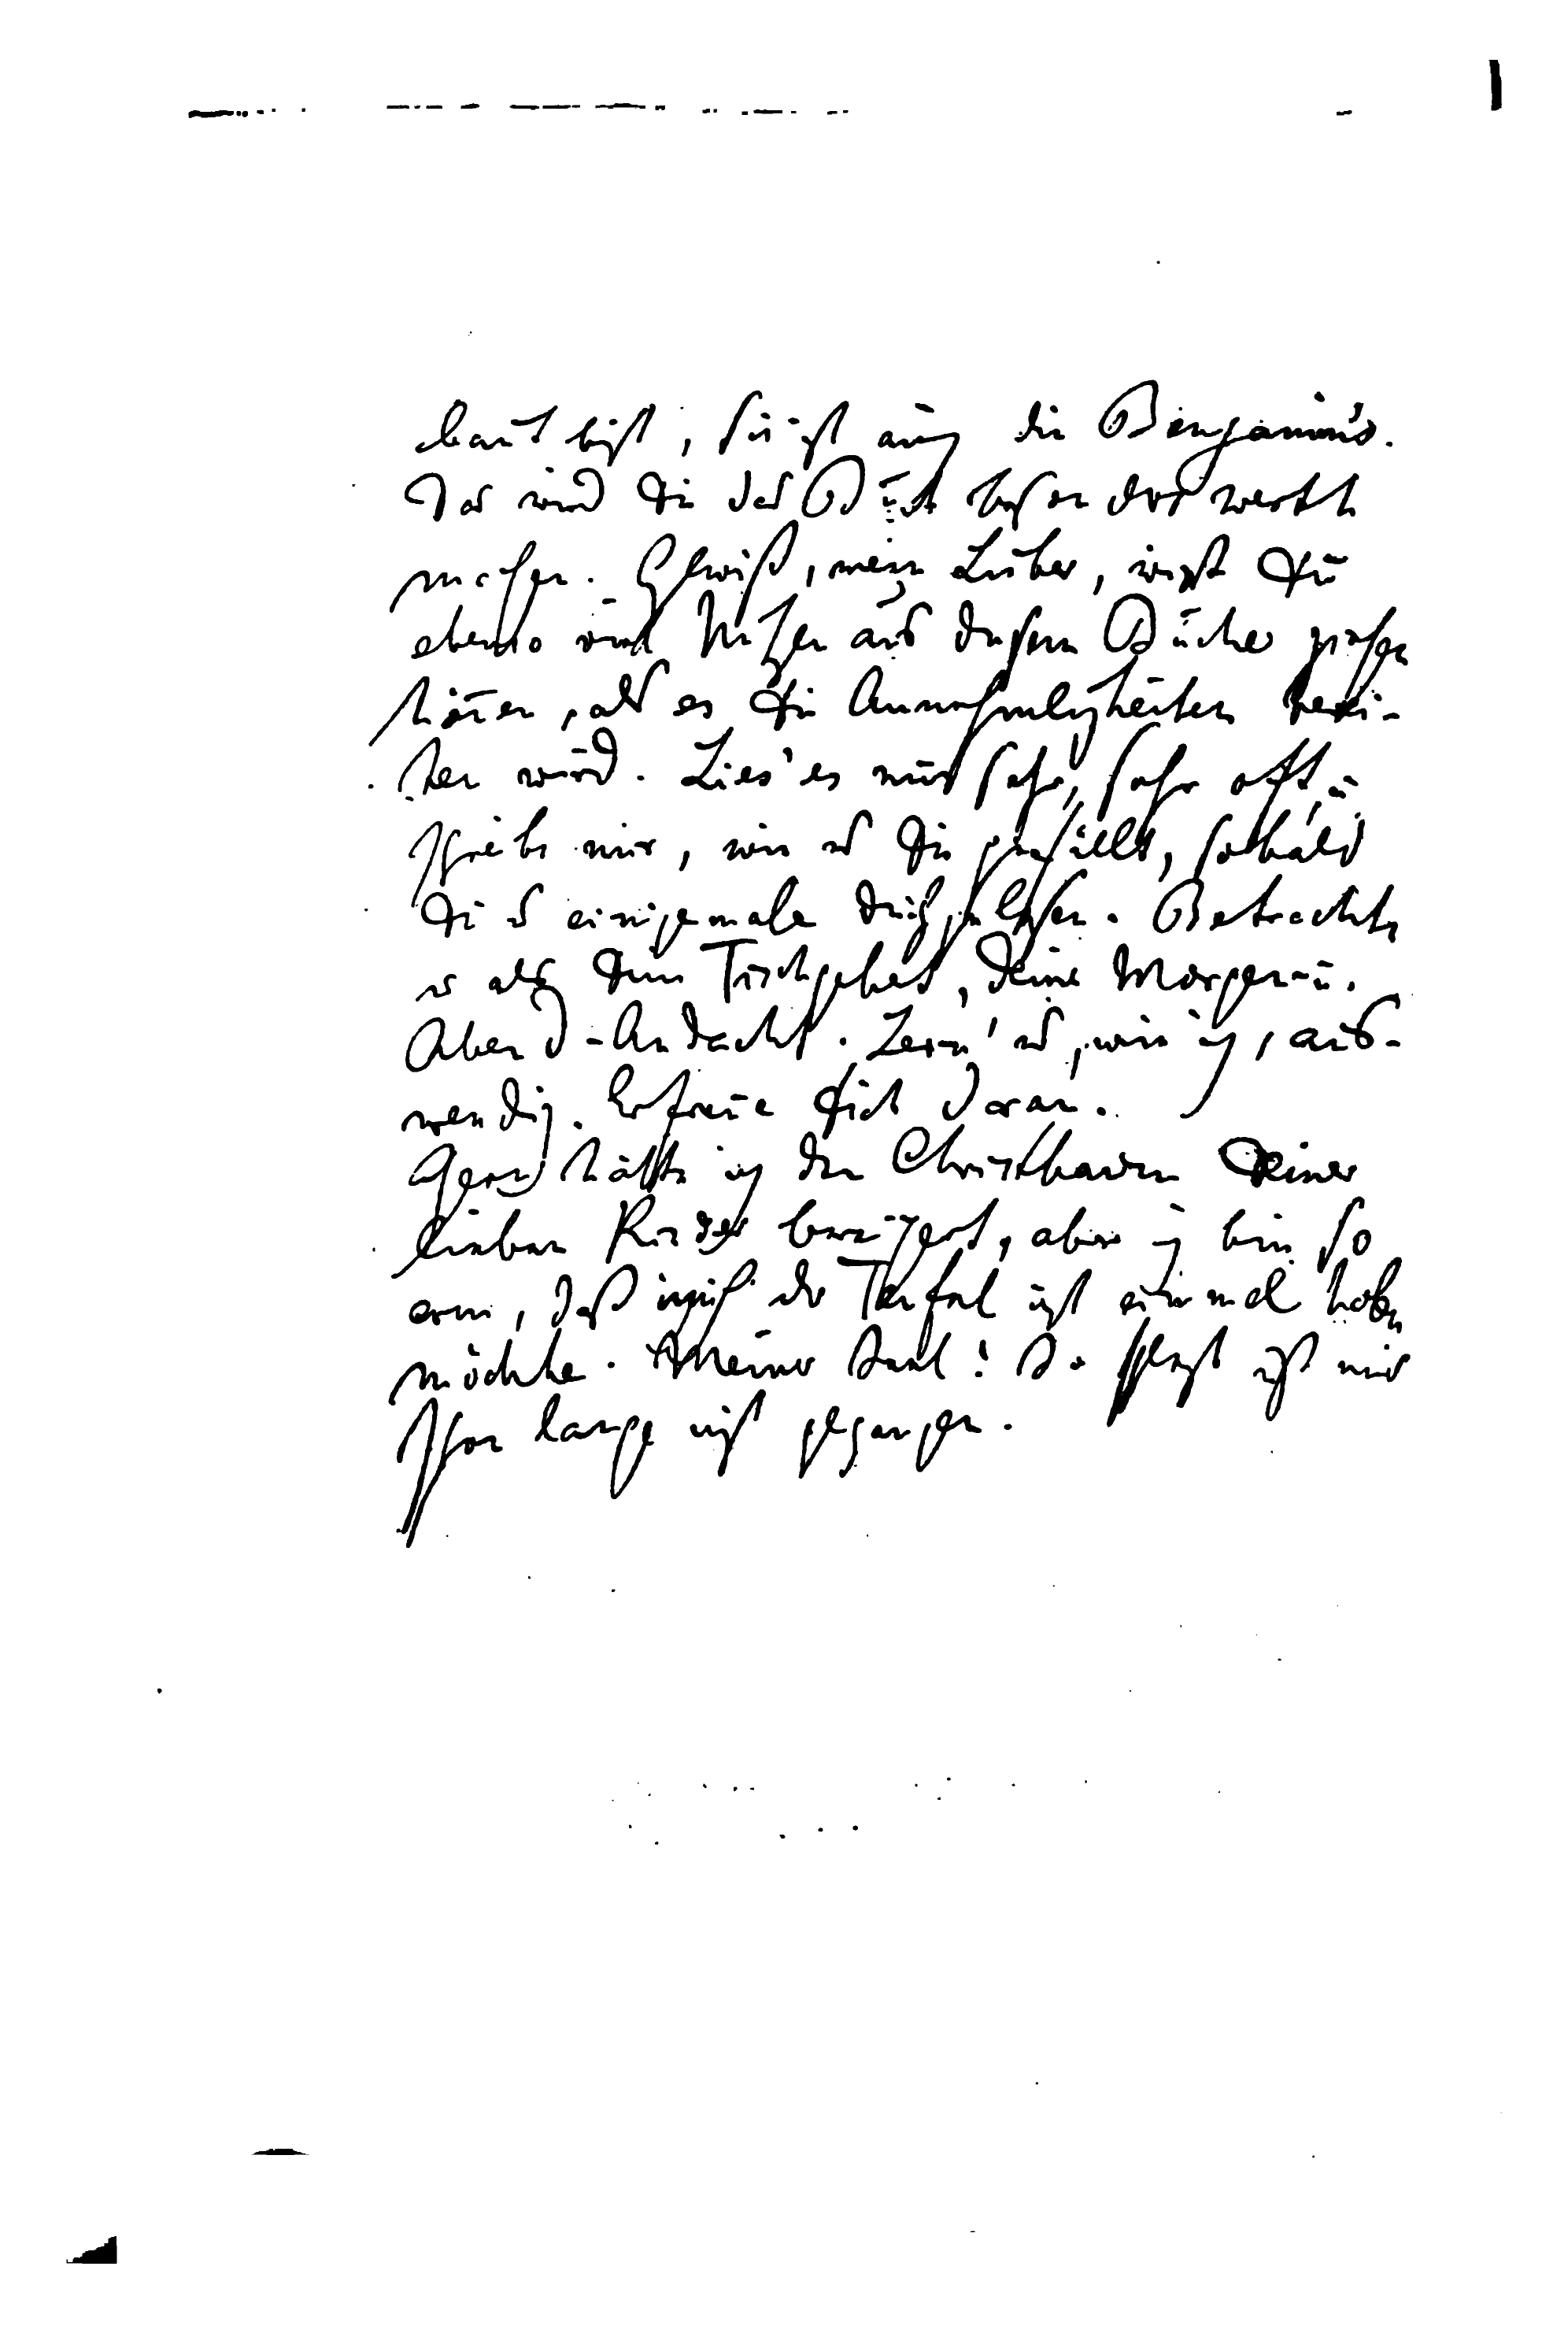 baut bist, sie ist auch die Benjamin's.
Das wird Dir das Buch besonders werth
machen. Gewiß, mein Lieber, wirst Du
ebenso viel Nutzen aus diesem Buche ziehen
können, als es Dir Annehmlichkeiten berei-
ten wird. Lies' es nur sehr, sehr oft, u.
schreibe mir, wie es Dir gefällt, sobald
Du es einigemale durchgelesen. Betrachte
es als Dein Tischgebet, Deine Morgen- u.
Abend-Andacht. Lern' es, wie ich, aus-
wendig. Erfreue Dich daran.
Gern hätte ich den Christbaum Deiner
lieben Kinder bereichert, aber ich bin so
arm, daß mich der Teufel nicht einmal holen
möchte. Meiner Seel! So schlecht ist mir
schon lange nicht gegangen.